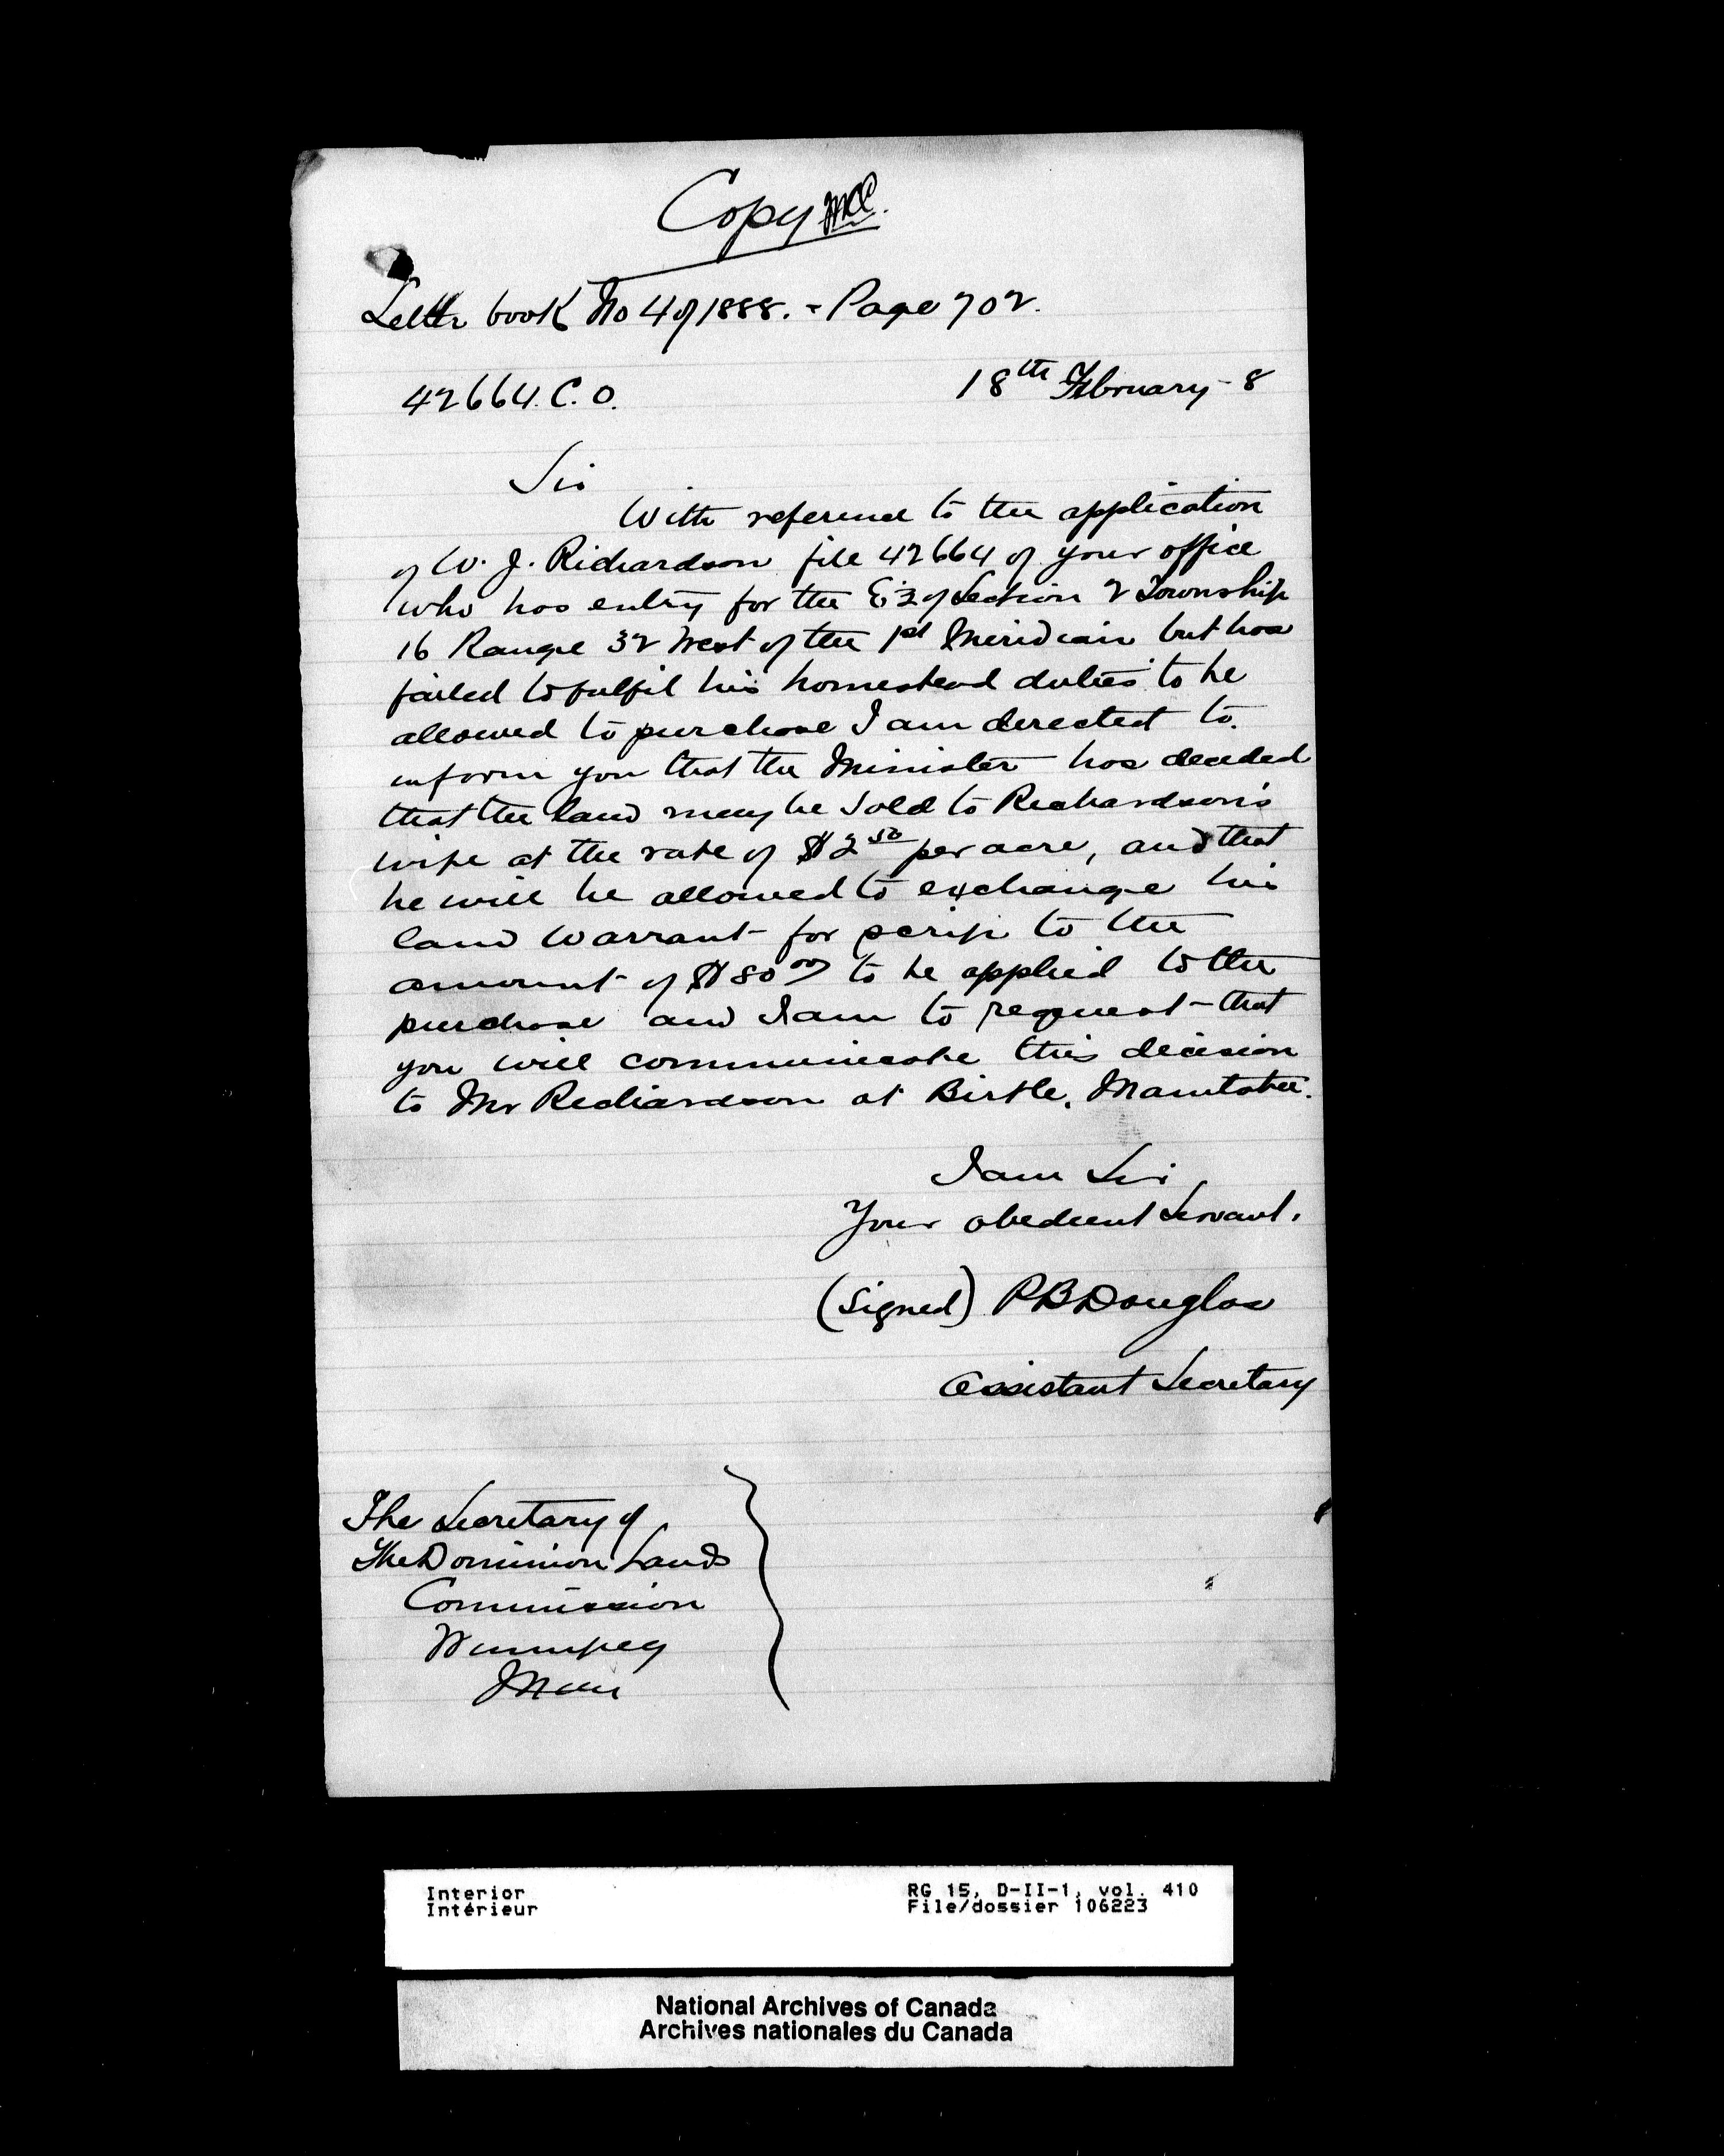 Copy
Letter book No 4 of 1888. - Page 702.
42664. C. O.
18th February - 8
Sir
With reference to the application
of W. J. Richardson file 42664 of your office
who has entry for the E½ of Section 2 Township
16 Range 32 West of the 1st Meridian but has
failed to fulfil his homestead duties to be
allowed to purchase I am derected to
inform you that the Minister has decided
that the land may be sold to Richardson's
wife at the rate of $2 50 per acre, and that
he will be allowed to exchange his
land warrant for scrip to the
amount of $80 00 to be applied to the
purchase and I am to request - that
you will communicate this decision
to Mr Richardson at Birtle, Manitoba.
I am Sir
Your obedient Servant.
(Signed) P B Douglas
Assistant Secretary
The Secretary of
The Dominion Lands
Commission
Winnipeg
Man
Interior
Intérieur
RG 15, D-II-1, vol. 410
File/dossier 106223
National Archives of Canada
Archives nationales du Canada